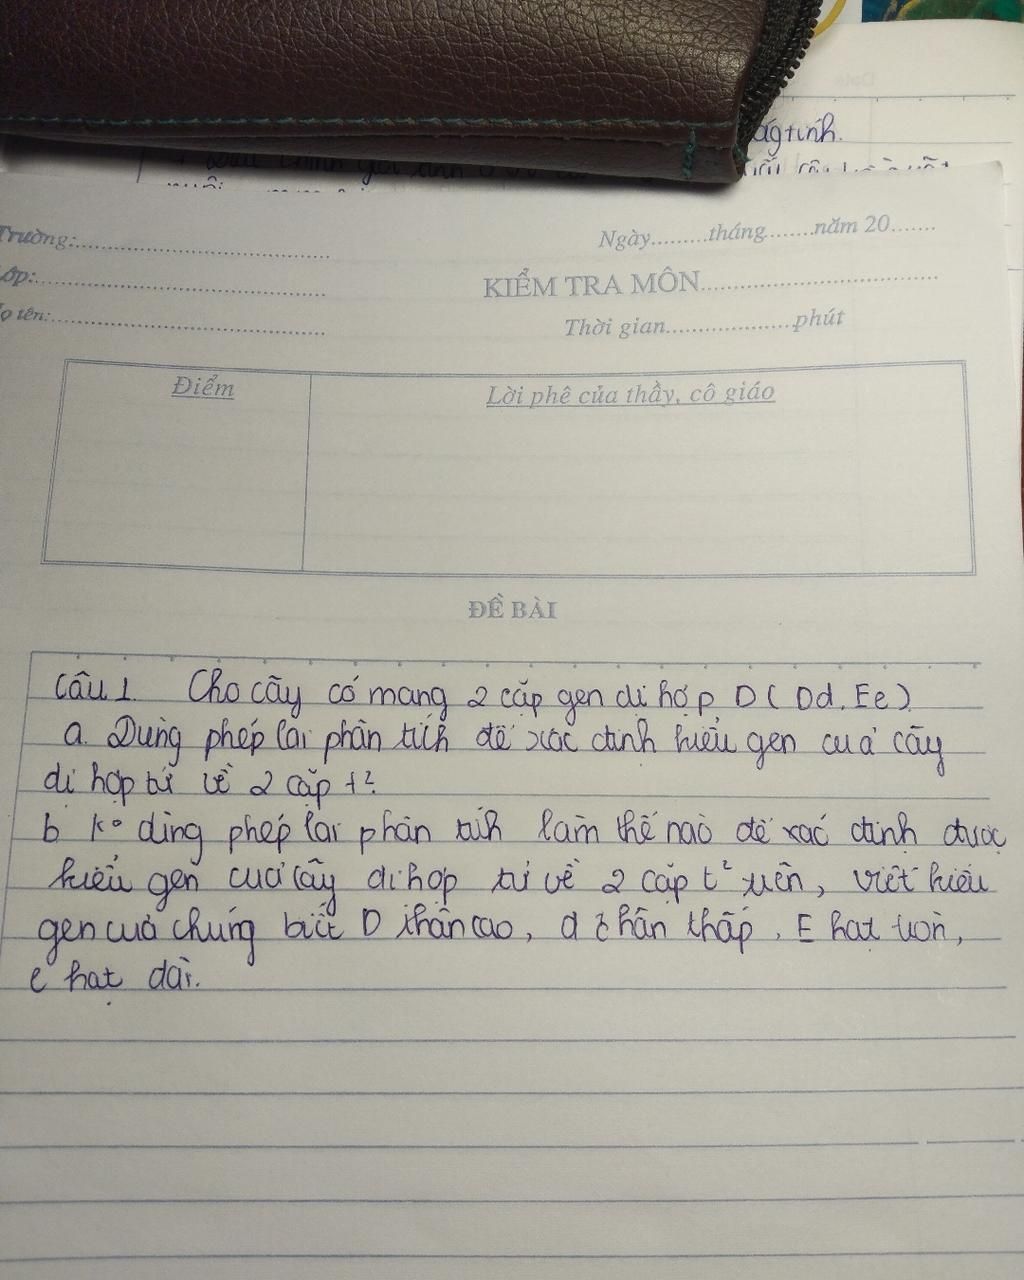 ágtính.
Trường:
Ngày.........tháng........năm 20.......
Lớp:
KIỂM TRA MÔN
ọ tên:
Thời gian....................phút
Điểm
Lời phê của thầy, cô giáo
ĐỀ BÀI
Câu 1. Cho cây có mang 2 cặp gen dị hợp D ( Dd, Ee).
a. Dùng phép lai phân tích để xác định kiểu gen của cây
dị hợp tử về 2 cặp t².
b K° dùng phép lai phân tích làm thế nào để xác định được
kiểu gen của cây dị hợp tử về 2 cặp t² trên, viết kiểu
gen của chúng biết D thân cao, d thân thấp, E hạt tròn,
e hạt dài.